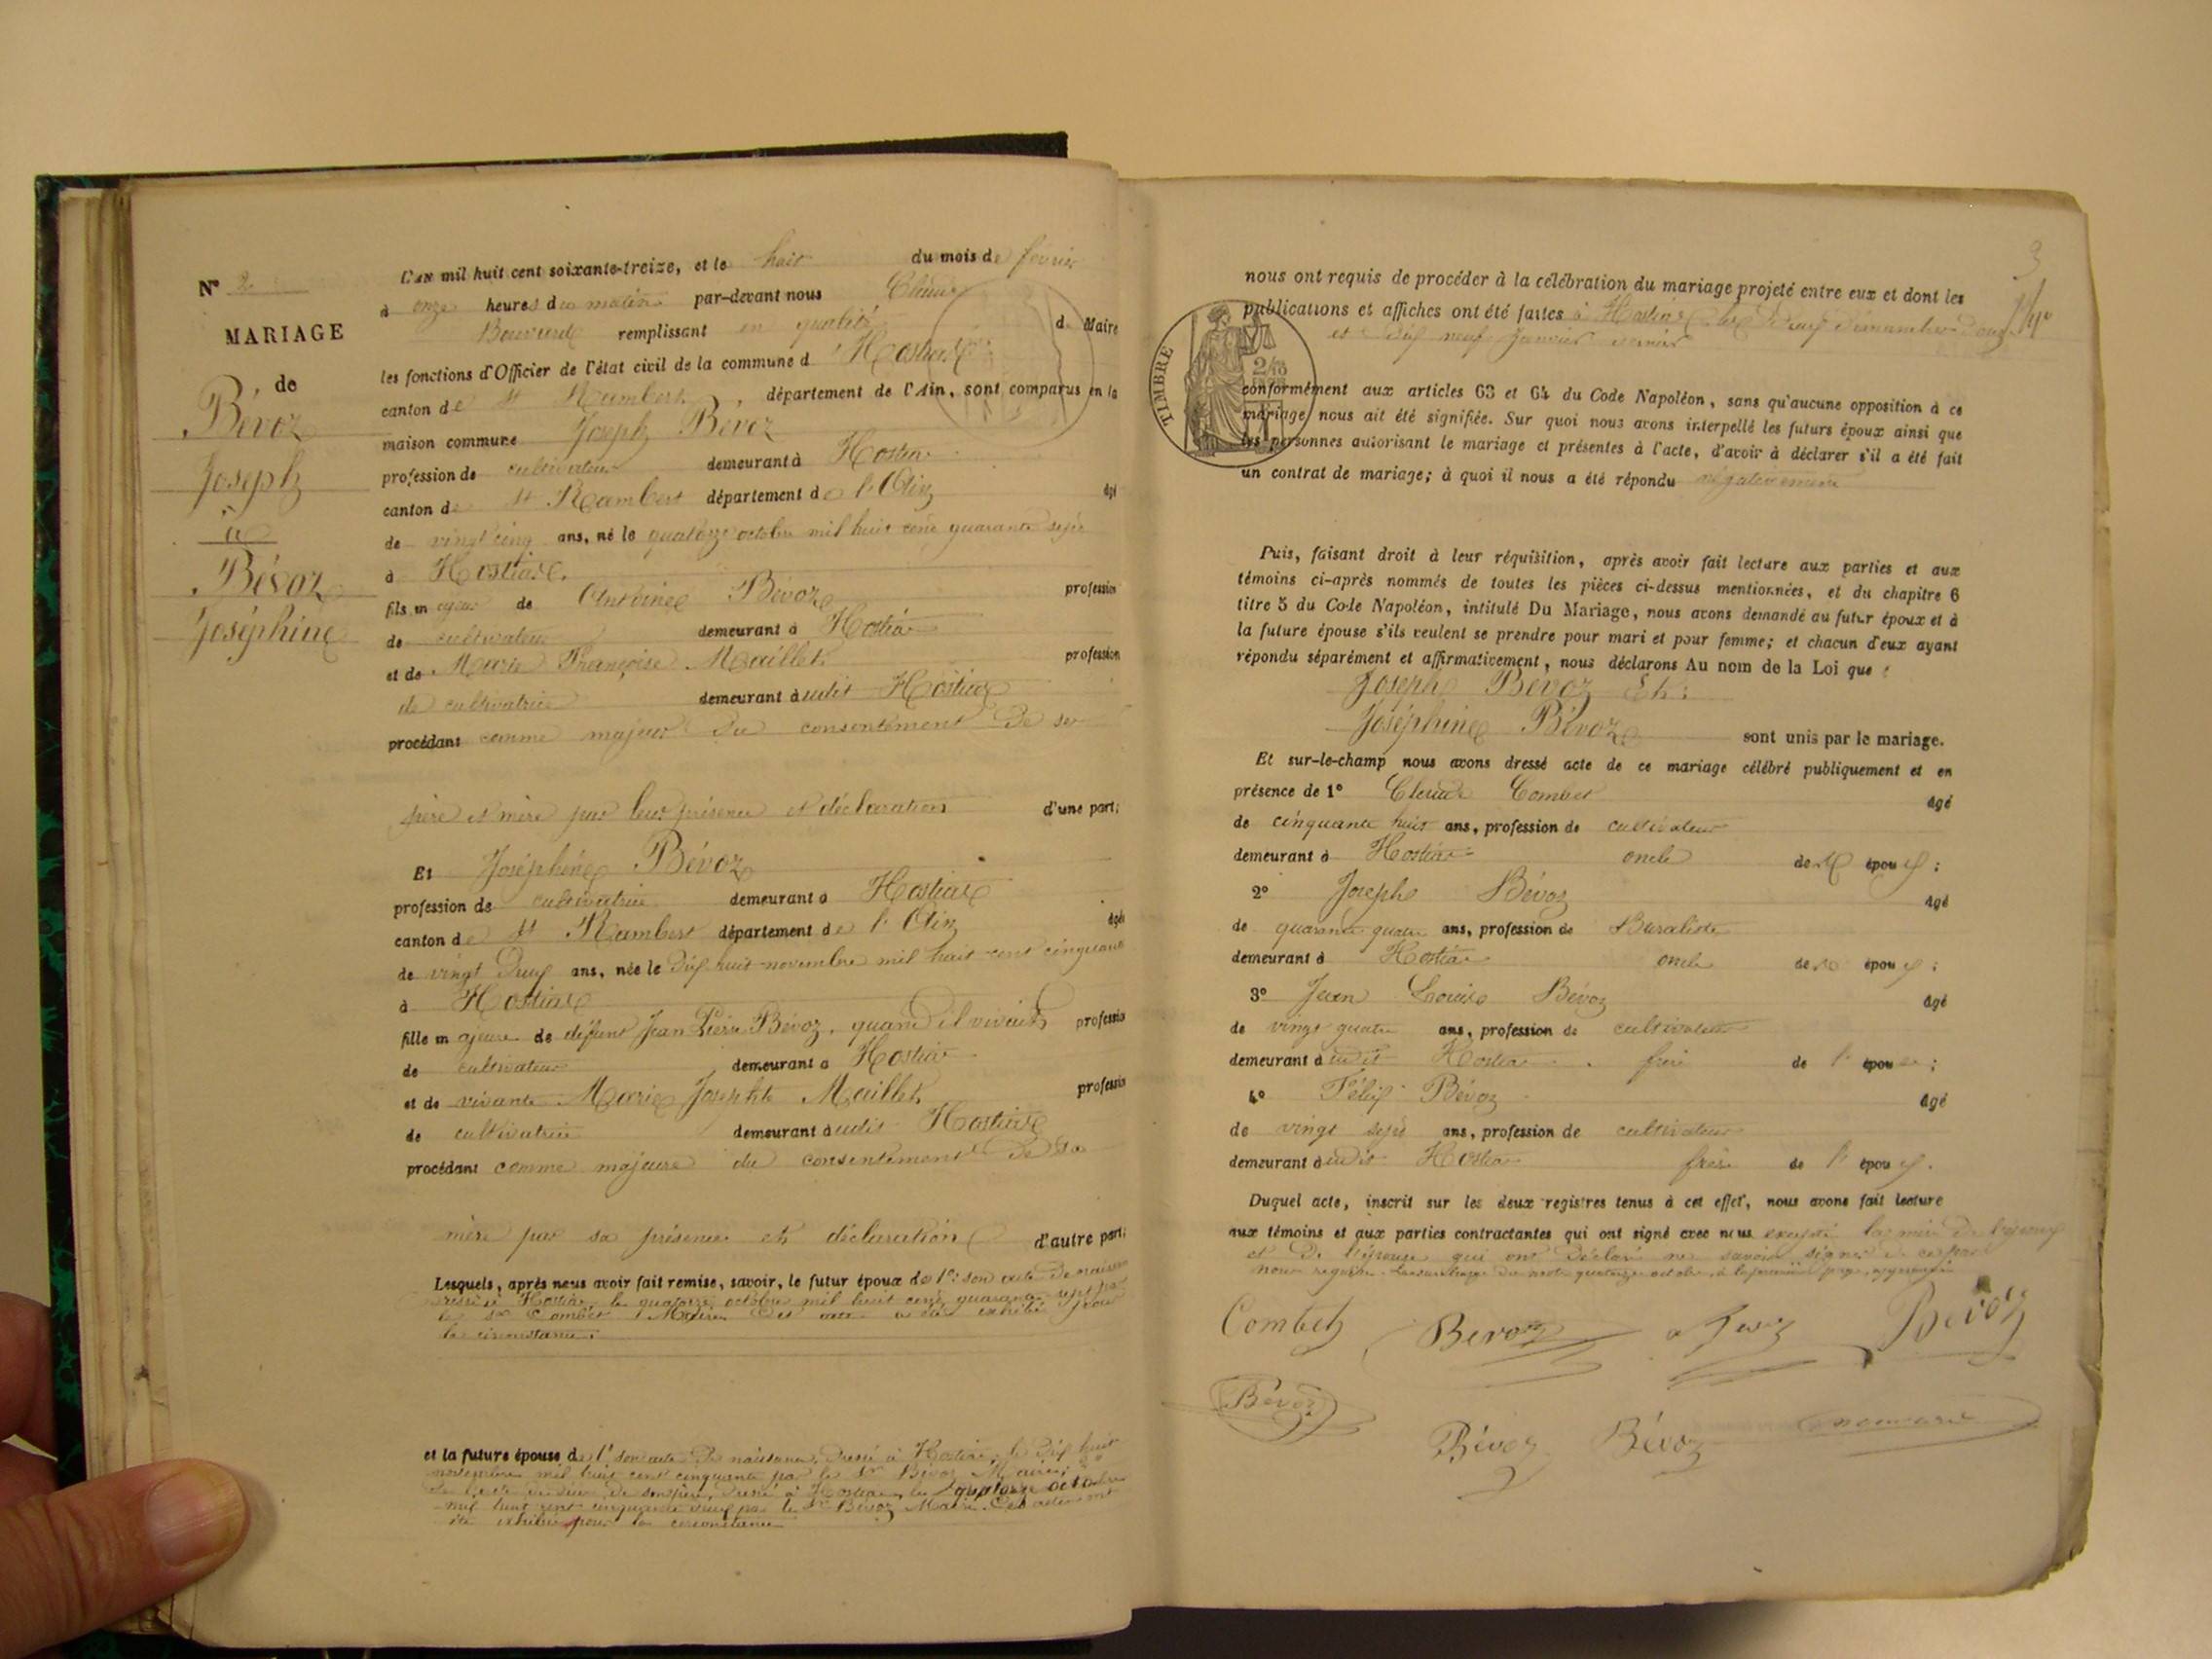 N° 2
MARIAGE
de
Bévoz
Joseph
à
Bévoz
Joséphine
L'an mil huit cent soixante-treize, et le huit du mois de février
à onze heures du matin par-devant nous Claude
Bouvard remplissant en qualité de Maire
les fonctions d'Officier de l'état civil de la commune d'Hostiaz
canton de St Rambert, département de l'Ain, sont comparus en la
maison commune Joseph Bévoz
profession de cultivateur demeurant à Hostiaz
canton de St Rambert département de l'Ain âgé
de vingt cinq ans, né le quatorze octobre mil huit cent quarante sept
à Hostiaz
fils majeur de Antoine Bévoz profession
de cultivateur demeurant à Hostiaz
et de Marie Françoise Maillet profession
de cultivatrice demeurant audit Hostiaz
procédant comme majeur du consentement de ses
père et mère par leur présence et déclaration d'une part;
Et Joséphine Bévoz
profession de cultivatrice demeurant à Hostiaz
canton de St Rambert département de l'Ain âgée
de vingt deux ans, née le dix huit novembre mil huit cent cinquante
à Hostiaz
fille majeure de défunt Jean Pierre Bévoz, quand il vivait profession
de cultivateur demeurant à Hostiaz
et de vivante Marie Josephte Maillet profession
de cultivatrice demeurant audit Hostiaz
procédant comme majeure du consentement de sa
mère par sa présence et déclaration d'autre part;
Lesquels, après nous avoir fait remise, savoir, le futur époux de 1° son acte de naissance
dressé à Hostiaz, le quatorze octobre mil huit cent quarante sept par
le Sr Combet Maire. Cet acte a été exhibé pour
la circonstance.
et la future épouse de 1° son acte de naissance, dressé à Hostiaz, le dix huit
novembre mil huit cent cinquante par le Sr Bévoz Maire;
de l'acte de décès de son père, dressé à Hostiaz, le quatorze octobre
mil huit cent cinquante par le Sr Bévoz Maire. Ces actes ont
été exhibés pour la circonstance
3
nous ont requis de procéder à la célébration du mariage projeté entre eux et dont les
publications et affiches ont été faites à Hostiaz les deux dimanches douze
et dix neuf janvier dernier
TIMBRE
2/10
conformément aux articles 63 et 64 du Code Napoléon, sans qu'aucune opposition à ce
mariage nous ait été signifiée. Sur quoi nous avons interpellé les futurs époux ainsi que
les personnes autorisant le mariage et présentes à l'acte, d'avoir à déclarer s'il a été fait
un contrat de mariage; à quoi il nous a été répondu négativement
Puis, faisant droit à leur réquisition, après avoir fait lecture aux parties et aux
témoins ci-après nommés de toutes les pièces ci-dessus mentionnées, et du chapitre 6
titre 5 du Code Napoléon, intitulé Du Mariage, nous avons demandé au futur époux et à
la future épouse s'ils veulent se prendre pour mari et pour femme; et chacun d'eux ayant
répondu séparément et affirmativement, nous déclarons Au nom de la Loi que
Joseph Bévoz Et
Joséphine Bévoz sont unis par le mariage.
Et sur-le-champ nous avons dressé acte de ce mariage célébré publiquement et en
présence de 1° Claude Combet âgé
de cinquante huit ans, profession de cultivateur
demeurant à Hostiaz oncle des époux;
2° Joseph Bévoz âgé
de quarante quatre ans, profession de Buraliste
demeurant à Hostiaz oncle des époux;
3° Jean Louis Bévoz âgé
de vingt quatre ans, profession de cultivateur
demeurant audit Hostiaz frère de l'épouse;
4° Félix Bévoz âgé
de vingt sept ans, profession de cultivateur
demeurant audit Hostiaz frère de l'époux.
Duquel acte, inscrit sur les deux registres tenus à cet effet, nous avons fait lecture
aux témoins et aux parties contractantes qui ont signé avec nous excepté la mère de l'époux
et de l'épouse qui ont déclaré ne savoir signer de ce par
nous requis. La surcharge des mots quatorze octobre, à la première page, approuvée
Combet Bevoz Bévoz
Bévoz
Bévoz Bévoz Bouvard